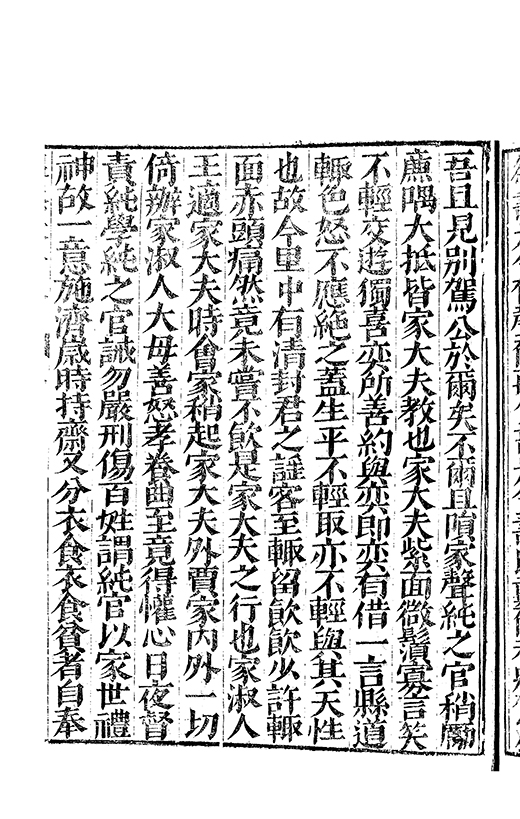 吾且見別駕公於爾矣不爾且隕家聲純之官稍勵
廉隅大抵皆家大夫教也家大夫紫面微鬚寡言笑
不輕交遊獨喜奕所善約與奕即奕有借一言縣道
輙色怒不應絶之蓋生平不輕取亦不輕與其天性
也故今里中有清封君之謡客至輙留飲飲少許輙
面赤頭痛然竟未嘗不飲是家大夫之行也家淑人
王適家大夫時會家稍起家大夫外賈家内外一切
倚辦家淑人大母善怒孝養曲至竟得懽心日夜督
責純學純之官誡勿嚴刑傷百姓謂純官以家世禮
神故一意施濟歳時持齋又分衣食衣食貧者自奉